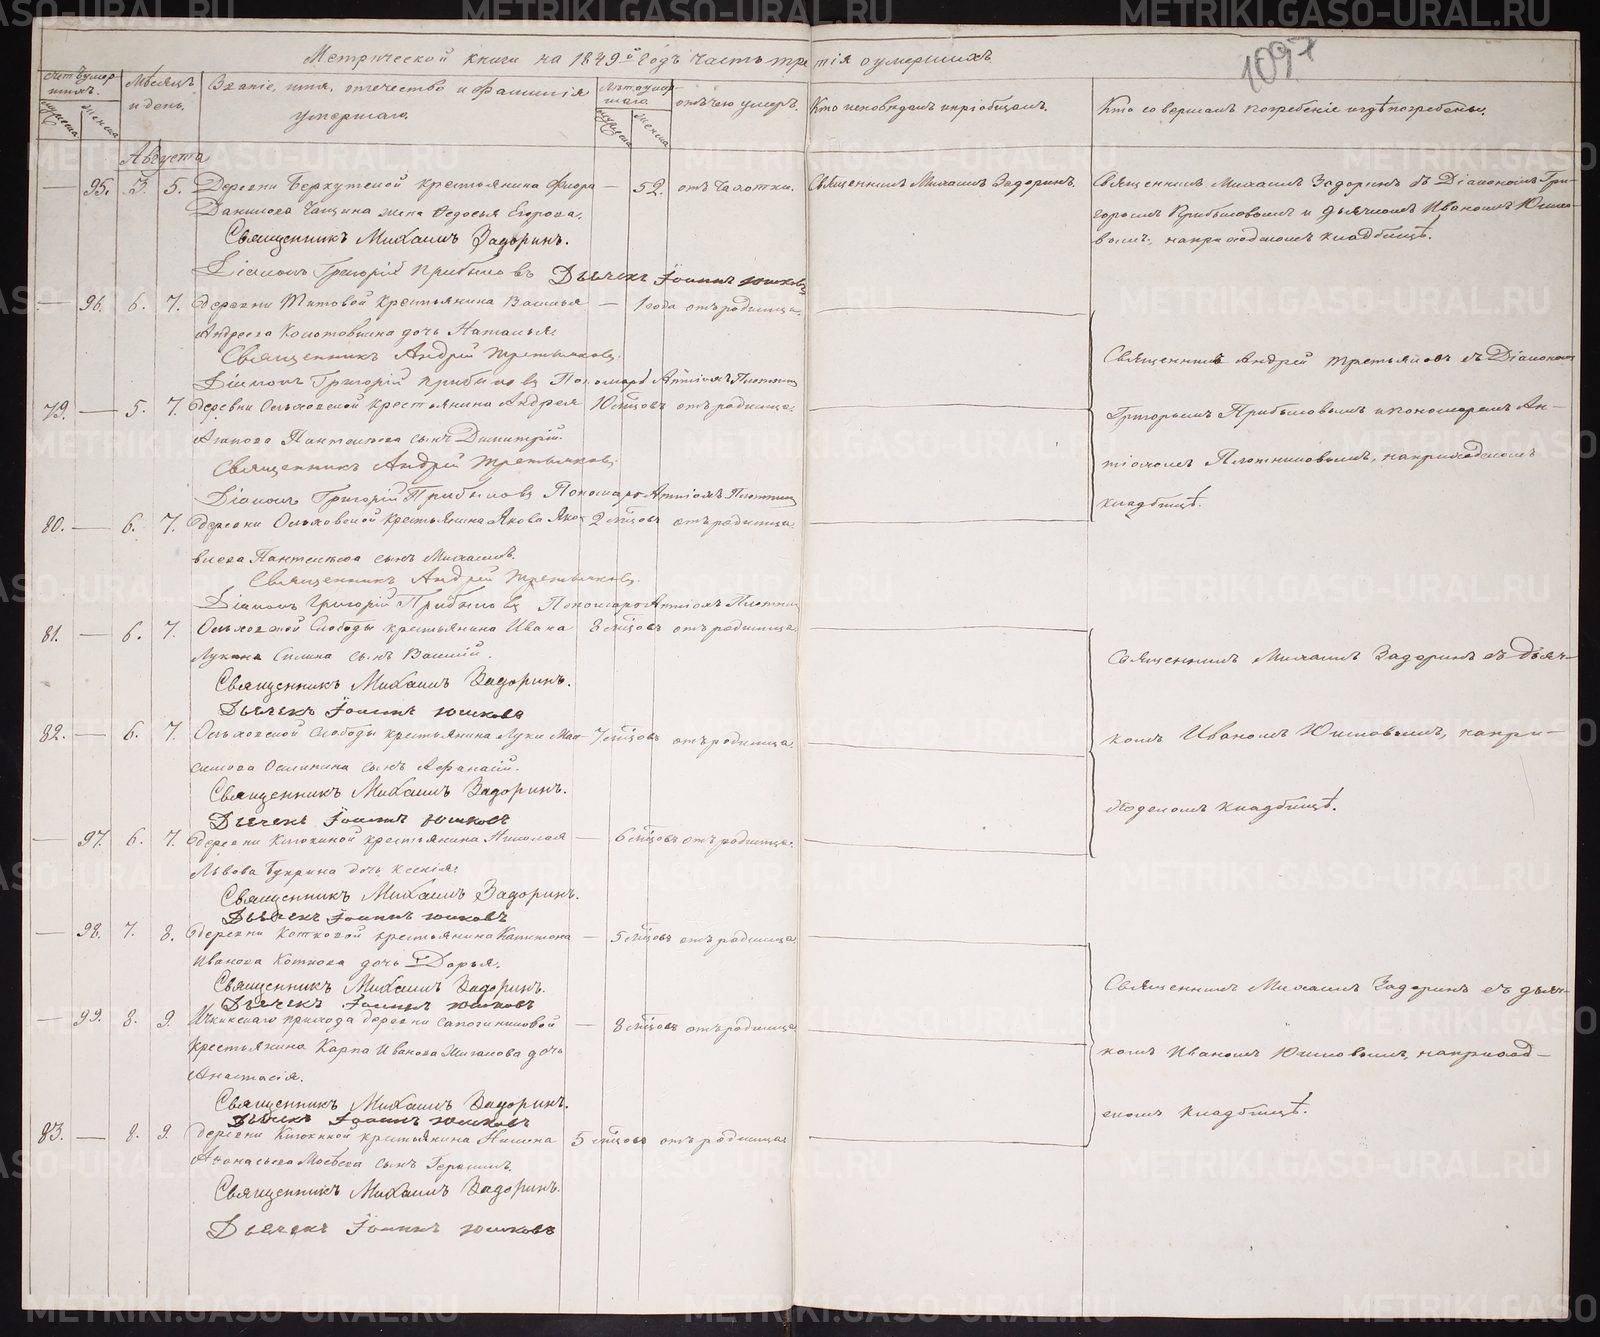 Метрической книги на 1849й годъ часть третія о умершихъ
1097
Счетъ умершихъ.
мужеска
женска
Мѣсяцъ и день.
Званіе, имя, отчество и фамилія
умершаго.
Лѣта умершаго
мужеска
женска
отъ чего умеръ.
Кто исповѣдалъ и пріобщалъ.
Кто совершалъ погребеніе и гдѣ погребены.
Августа
— 95. 3. 5. Деревни крестьянина Федора — 52. отъ чахотки. Священникъ Михаилъ Задоринъ. Священникъ Михаилъ Задоринъ съ Діакономъ Гри-
Данилова жена Федосья Егорова. горіемъ Прибыловымъ и дьячкомъ Иваномъ Юшко-
Священникъ Михаилъ Задоринъ. вымъ, на приходскомъ кладбищѣ.
Діаконъ Григорій Прибыловъ Дьячекъ Іоаннъ Юшковъ
— 96. 6. 7. Деревни Титовой крестьянина Василья — 1 года отъ родимца.
Андреева дочь Наталья.
Священникъ Андрей Третьяковъ. Священникъ Андрей Третьяковъ съ Діакономъ
Діаконъ Григорій Прибыловъ Пономарь Антіохъ Плотник
79. — 5. 7. Деревни Ольховской крестьянина Андрея 10 мѣсцовъ отъ родимца. Григорьемъ Прибыловымъ и пономаремъ Ан-
Агапова Пантелѣева сынъ Димитрій.
Священникъ Андрей Третьяковъ. тіохомъ Плотниковымъ, на приходскомъ
Діаконъ Григорій Прибыловъ Пономарь Антіохъ Плотник кладбищѣ.
80. — 6. 7. Деревни Ольховской крестьянина Якова Яко- 2 мѣсцовъ отъ родимца.
влева Пантелѣева сынъ Михаилъ.
Священникъ Андрей Третьяковъ.
Діаконъ Григорій Прибыловъ Пономарь Антіохъ Плотник
81. — 6. 7. Ольховской Слободы крестьянина Ивана 8 мѣсцовъ отъ родимца.
Лукина Силина сынъ Василій. Священникъ Михаилъ Задоринъ съ Дьяч-
Священникъ Михаилъ Задоринъ.
Дьячекъ Іоаннъ Юшковъ
82. — 6. 7. Ольховской Слободы крестьянина Луки Мак- 7 мѣсцовъ отъ родимца. комъ Иваномъ Юшковымъ, на при-
симова сынъ Афанасій.
Священникъ Михаилъ Задоринъ. ходскомъ кладбищѣ.
Дьячекъ Іоаннъ Юшковъ
— 97. 6. 7. Деревни Клюкиной крестьянина Николая — 6 мѣсцовъ отъ родимца.
Львова Букрина дочь Ксенія.
Священникъ Михаилъ Задоринъ.
Дьячекъ Іоаннъ Юшковъ
— 98. 7. 8. Деревни Котковой крестьянина Капитона — 5 мѣсцовъ отъ родимца.
Иванова Коткова дочь Дарья.
Священникъ Михаилъ Задоринъ. Священникъ Михаилъ Задоринъ съ дьяч-
Дьячекъ Іоаннъ Юшковъ
— 99. 8. 9. Ичкинскаго прихода деревни Сапожниковой — 8 мѣсцовъ отъ родимца.
крестьянина Карпа Иванова дочь комъ Иваномъ Юшковымъ, на приход-
Анастасія.
Священникъ Михаилъ Задоринъ. скомъ кладбищѣ.
Дьячекъ Іоаннъ Юшковъ
83. — 8. 9. Деревни Клюкиной крестьянина 5 мѣсцовъ отъ родимца.
Афанасьева Мосѣева сынъ Герасимъ.
Священникъ Михаилъ Задоринъ.
Дьячекъ Іоаннъ Юшковъ
METRIKI.GASO-URAL.RU